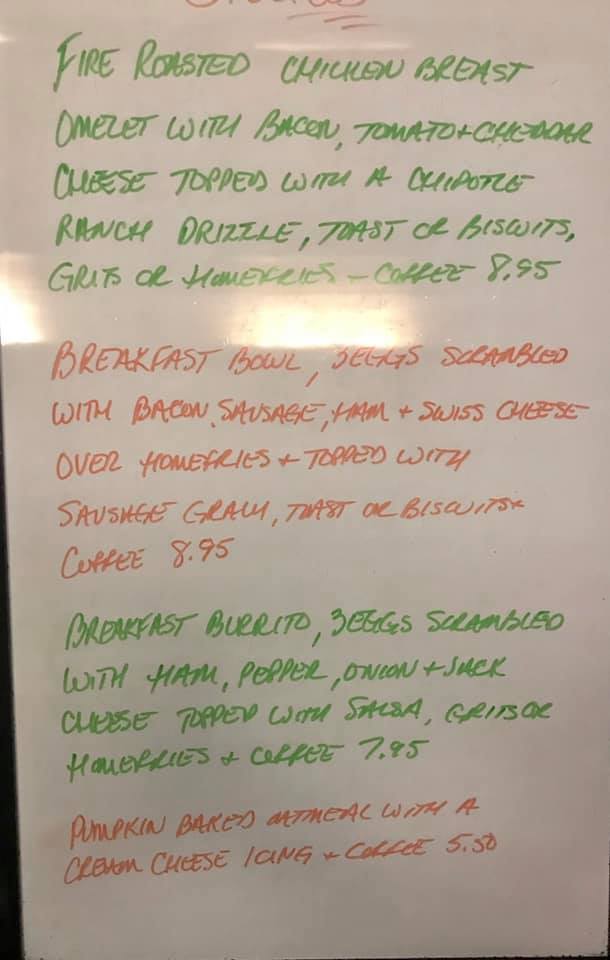 FIRE ROASTED CHICKEN BREAST
OMELET WITH BACON, TOMATO + CHEDDAR
CHEESE TOPPED WITH A CHIPOTLE
RANCH DRIZZLE, TOAST OR BISCUITS,
GRITS OR HOMEFRIES - COFFEE 8.95
BREAKFAST BOWL, 3 EGGS SCRAMBLED
WITH BACON, SAUSAGE, HAM + SWISS CHEESE
OVER HOMEFRIES + TOPPED WITH
SAUSAGE GRAVY, TOAST OR BISCUITS +
COFFEE 8.95
BREAKFAST BURRITO, 3 EGGS SCRAMBLED
WITH HAM, PEPPER, ONION + JACK
CHEESE TOPPED WITH SALSA, GRITS OR
HOMEFRIES + COFFEE 7.95
PUMPKIN BAKED OATMEAL WITH A
CREAM CHEESE ICING + COFFEE 5.50